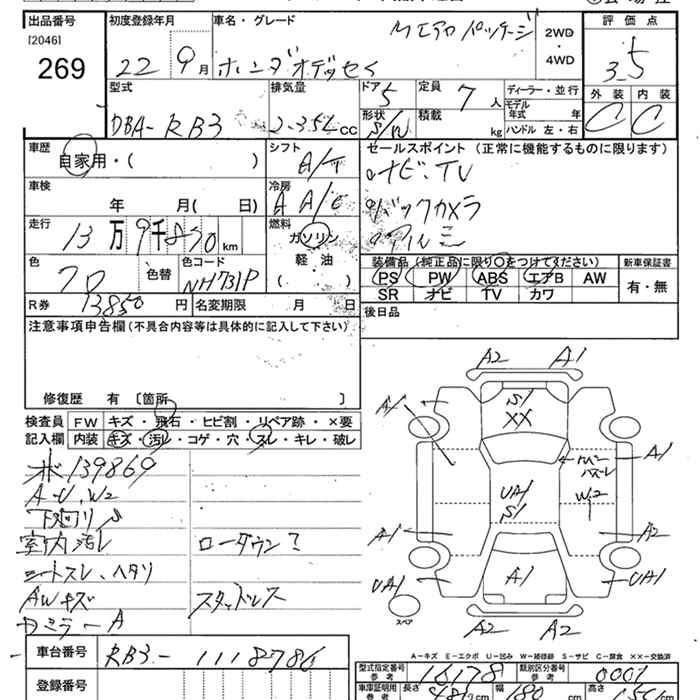 出品番号 初度登録年月 車名・グレード 2WD・4WD 評価点
[2046]
269 22 9月 ホンダオデッセイ Mエアロパッケージ 3.5
型式 排気量 ドア 定員 ディーラー・並行 外装 内装
DBA-RB3 2.35L CC 5 7人 モデル年式 年 C C
形状 積載 kg ハンドル 左・右
車歴 シフト セールスポイント (正常に機能するものに限ります)
自家用・( ) A/T ナビ.TV
車検 冷房 バックカメラ
年 月( 日) A A/C アルミ
走行 燃料
13万9千870km ガソリン
軽油
( )
装備品(純正品に限り○をつけてください) 新車保証書
PS PW ABS エアB AW 有・無
SR ナビ TV カワ
色 色替 色コード
クロ NH731P
後日品
R券 13850円 名変期限 月 日
注意事項申告欄(不具合内容等は具体的に記入して下さい)
修復歴 有 〔箇所 〕
検査員 FW キズ・飛石・ヒビ割・リペア跡・×要
記入欄 内装 キズ・汚レ・コゲ・穴・スレ・キレ・破レ
139869
A-U、W2
下廻りS
室内汚レ ローダウン?
シートスレ、ヘタリ
AWキズ スタッドレス
ミラーA
A2 A1
S1
XX
A1
A1
UA1
S1
W2
A1 A2
UA1 A1 UA1
スペア
A2 A2
A-キズ E-エクボ U-凹み W-補修跡 S-サビ C-腐食 XX-交換済
車台番号 RB3-1118786
型式指定番号 参考 16178 類別区分番号 参考 0001
登録番号
車庫証明用 参考 長さ cm 幅 180cm 高さ cm